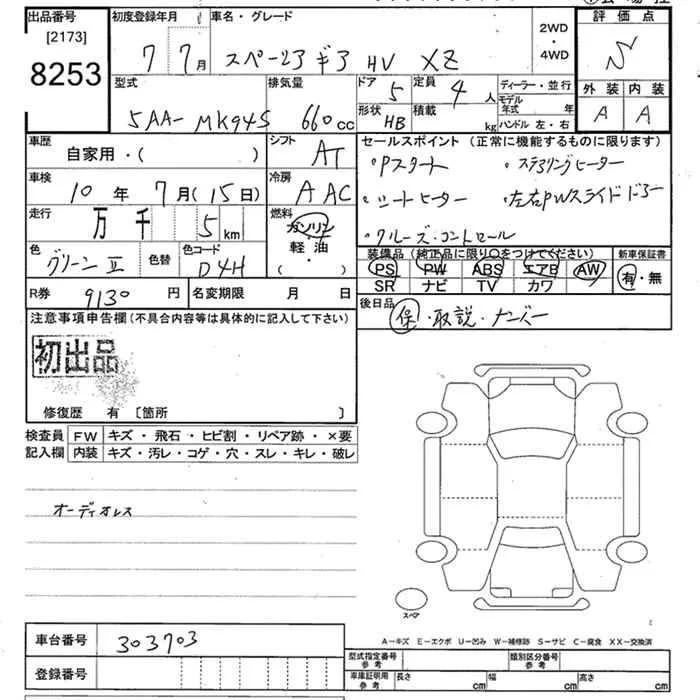 出品番号 初度登録年月 車名・グレード 2WD・4WD 評価点
[2173]
8253 7 7月 スペーシアギア HV XZ S
型式 排気量 ドア 定員 ディーラー・並行 外装 内装
5AA-MK94S 660cc 5 4人 モデル年式 年 A A
形状 積載 ハンドル 左・右
HB kg
車歴 シフト セールスポイント (正常に機能するものに限ります)
自家用・( ) AT ・Pスタート ・ステアリングヒーター
車検 冷房
10年7月(15日) AAC ・シートヒーター ・左右PWスライドドアー
走行 燃料
万 千 5km ガソリン ・クルーズ・コントロール
軽・油
( ・ )
色 色替 色コード 装備品 (純正品に限り○をつけてください) 新車保証書
グリーンⅡ D4H PS PW ABS エアB AW 有・無
SR ナビ TV カワ
R券 9130円 名変期限 月 日 後日品
保・取説・ナンバー
注意事項申告欄 (不具合内容等は具体的に記入して下さい)
初出品
修復歴 有 〔箇所 〕
検査員 FW キズ・飛石・ヒビ割・リペア跡・×要
記入欄 内装 キズ・汚レ・コゲ・穴・スレ・キレ・破レ
オーディオレス
スペア
A-キズ E-エクボ U-凹み W-補修跡 S-サビ C-腐食 XX-交換済
車台番号 303703
型式指定番号 参考 類別区分番号 参考
登録番号 車庫証明用 参考 長さ cm 幅 cm 高さ cm